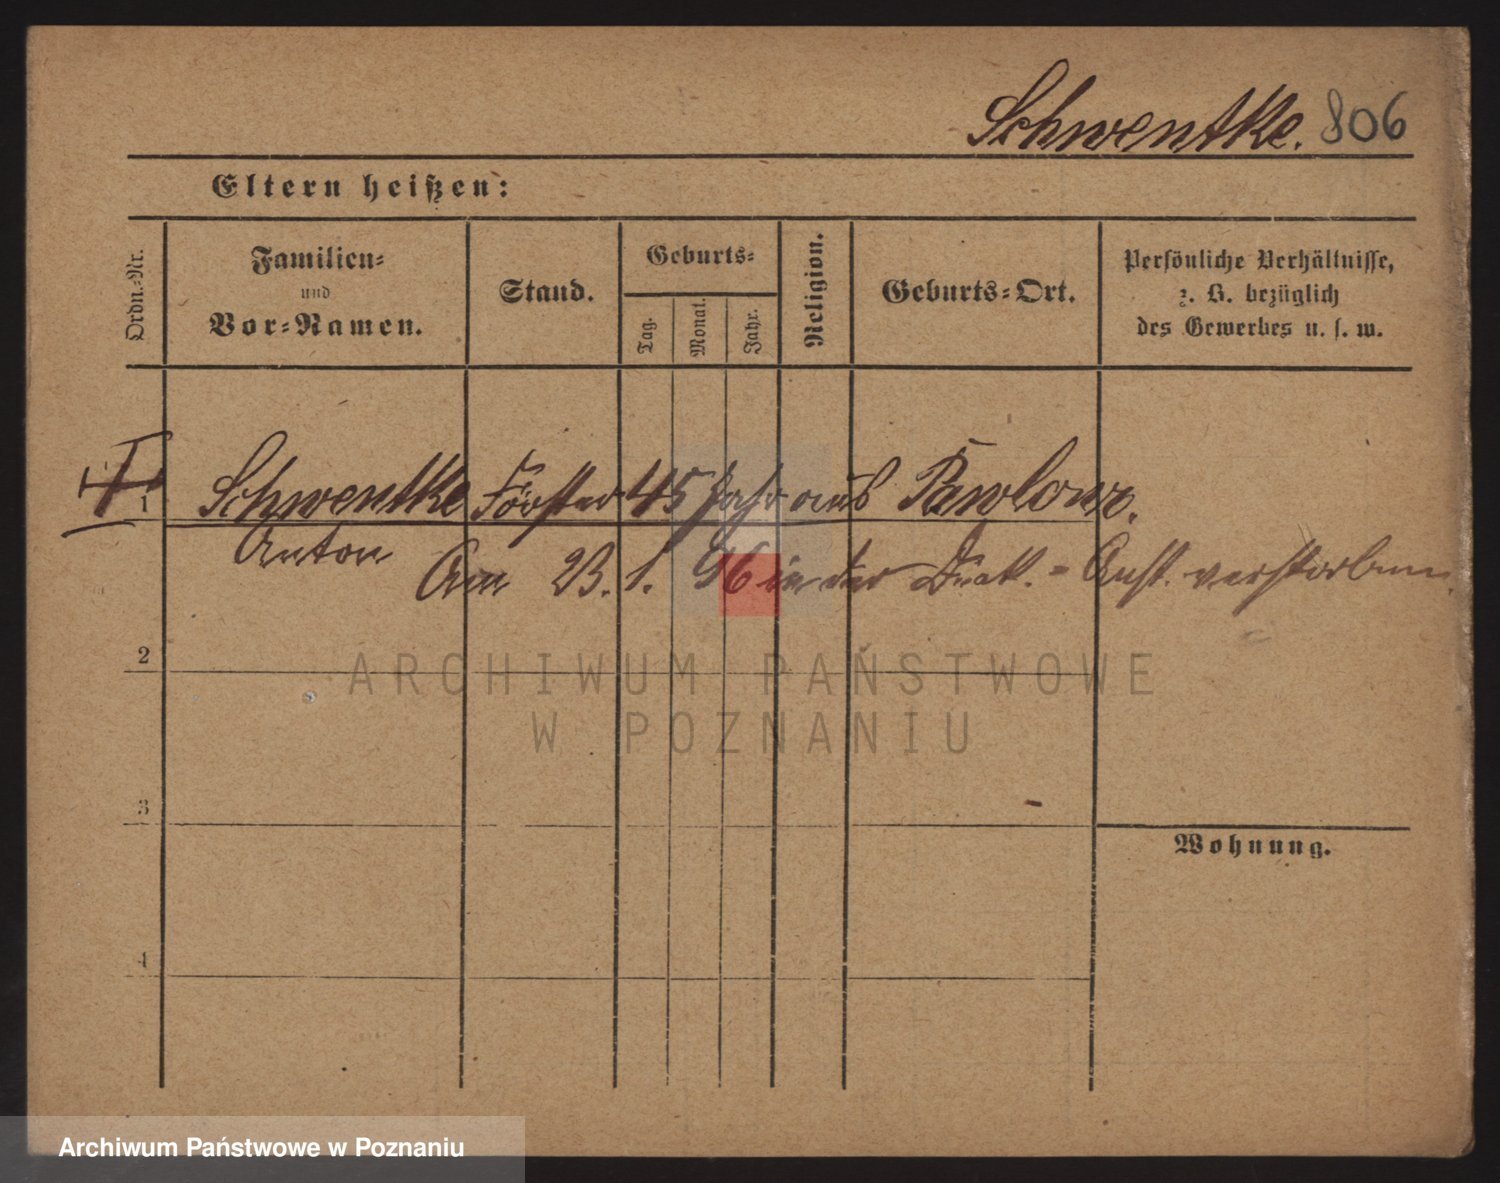 Schwentke. 806
Eltern heißen:
Ordn.-Nr.
Familien-
und
Vor-Namen.
Stand.
Geburts-
Tag.
Monat.
Jahr.
Religion.
Geburts-Ort.
Persönliche Verhältnisse,
z. B. bezüglich
des Gewerbes u. s. w.
1 Schwentke Förster 45 Jahr aus Pawlowo.
Anton
Am 23. 1. 96 in der Diak. - Anst. verstorben.
2
3
4
Wohnung.
ARCHIWUM PAŃSTWOWE
W POZNANIU
Archiwum Państwowe w Poznaniu